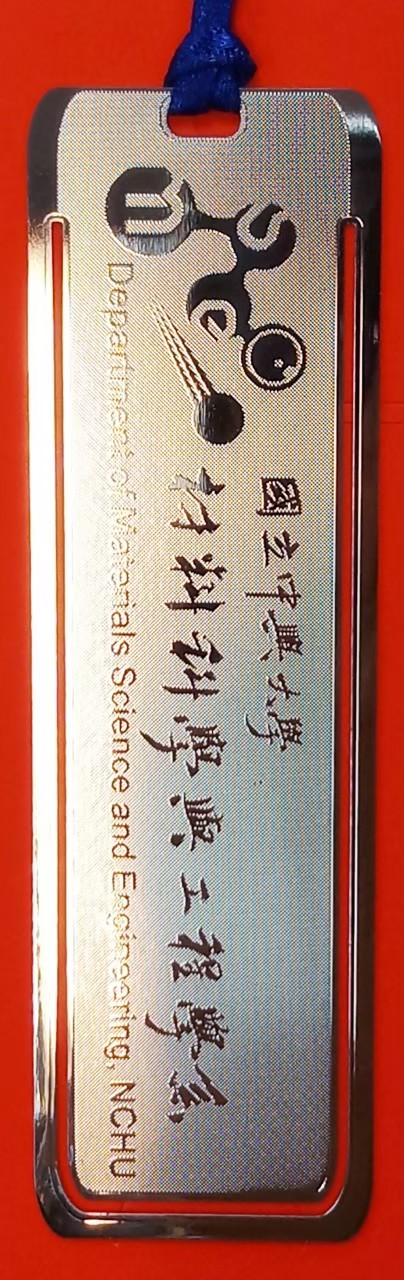 國立中興大學
材料科學與工程學系
Department of Materials Science and Engineering, NCHU